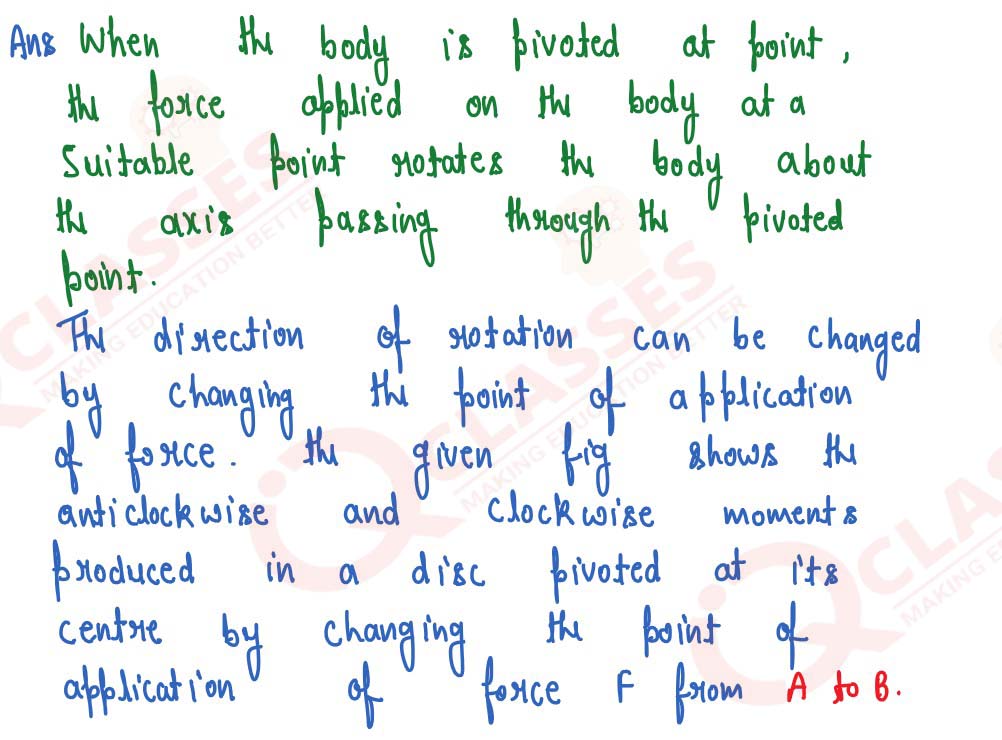 Ans When the body is pivoted at point,
the force applied on the body at a
Suitable point rotates the body about
the axis passing through the pivoted
point.
The direction of rotation can be changed
by changing the point of application
of force. the given fig shows the
anticlockwise and clockwise moments
produced in a disc pivoted at its
centre by changing the point of
application of force F from A to B.
CLASSES
MAKING EDUCATION BETTER
CLASSES
MAKING EDUCATION BETTER
CLASSES
MAKING E